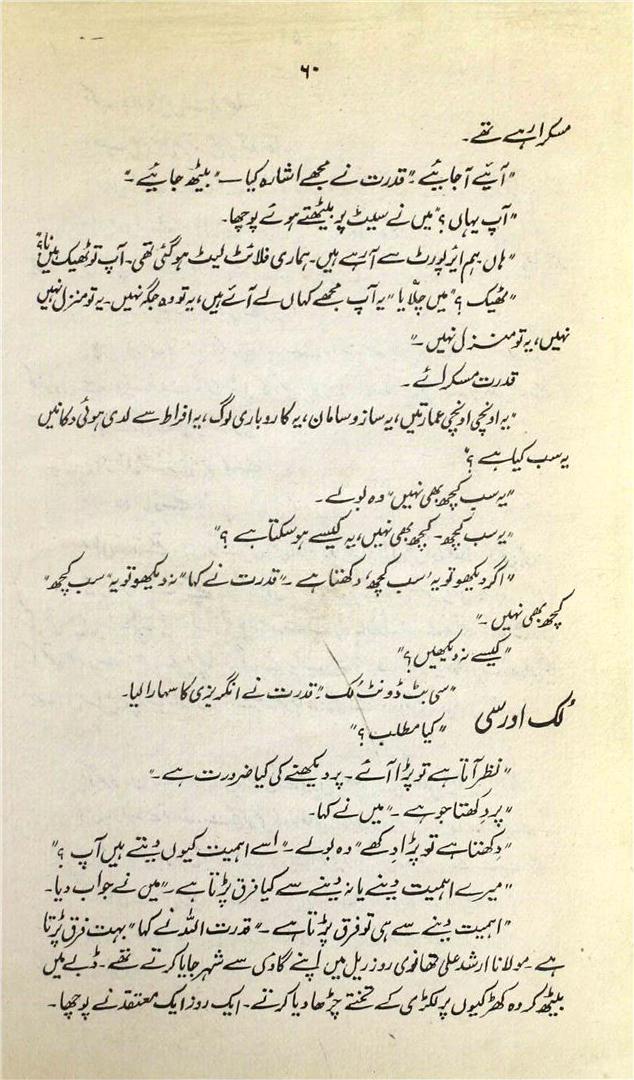 ۶۰
مسکرا رہے تھے۔
"آئیے آجائیے۔" قدرت نے مجھے اشارہ کیا — "بیٹھ جائیے۔"
"آپ یہاں؟" میں نے سیٹ پر بیٹھتے ہوئے پوچھا۔
"ہاں ہم ایئرپورٹ سے آ رہے ہیں۔ ہماری فلائٹ لیٹ ہو گئی تھی۔ آپ تو ٹھیک ہیں نا؟"
"ٹھیک؟" میں چلّایا "یہ آپ مجھے کہاں لے آئے ہیں، یہ تو وہ جگہ نہیں۔ یہ تو منزل نہیں
نہیں، یہ تو منزل نہیں۔"
قدرت مسکرائے۔
"یہ اونچی اونچی عمارتیں، یہ ساز و سامان، یہ کاروباری لوگ، یہ افراط سے لدی ہوئی دکانیں
یہ سب کیا ہے؟"
"یہ سب کچھ بھی نہیں" وہ بولے۔
"یہ سب کچھ۔ کچھ بھی نہیں، یہ کیسے ہو سکتا ہے؟"
"اگر دیکھو تو یہ 'سب کچھ' دکھتا ہے۔" قدرت نے کہا "نہ دیکھو تو یہ "سب کچھ"
کچھ بھی نہیں۔"
"کیسے نہ دیکھیں؟"
"سی بٹ ڈونٹ لُک" قدرت نے انگریزی کا سہارا لیا۔
لُک اور سی
"کیا مطلب؟"
"نظر آتا ہے تو پڑا آئے۔ پر دیکھنے کی کیا ضرورت ہے۔"
"پر دِکھتا جو ہے۔" میں نے کہا۔
"دِکھتا ہے تو پڑا دکھے" وہ بولے۔ "اسے اہمیت کیوں دیتے ہیں آپ؟"
"میرے اہمیت دینے یا نہ دینے سے کیا فرق پڑتا ہے۔" میں نے جواب دیا۔
"اہمیت دینے سے ہی تو فرق پڑتا ہے۔" قدرت اللہ نے کہا "بہت فرق پڑتا
ہے۔ مولانا ارشد علی تھانوی روز ریل میں اپنے گاؤں سے شہر جایا کرتے تھے۔ ڈبے میں
بیٹھ کر وہ کھڑکیوں پر لکڑی کے تختے چڑھا دیا کرتے۔ ایک روز ایک معتقد نے پوچھا۔